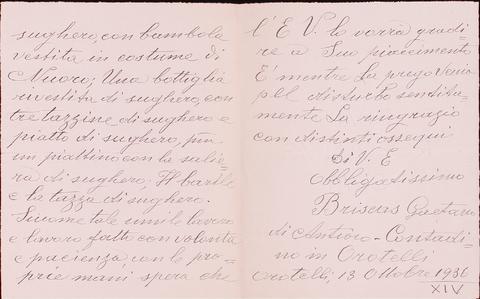 sughero, con bambola
vestita in costume di
Nuoro; Una bottiglia
rivestita di sughero, con
tre tazzine di sughero e
piatto di sughero, più
un piattino con la salie=
ra di sughero; Il barile
e la tazza di sughero.
Siccome tale umile lavoro
e lavoro fatto con volontà
e pacienza con le pro=
prie mani, spera che
l'E V. lo vorrà gradi=
re a Suo piacimento
E mentre La prego Venia
pel disturbo sentita=
mente La ringrazio
con distinti ossequi
Di V. E
Obbligatissimo
Gaetano
di - Contadi=
no in Orotelli
Orotelli, 13 Ottobre 1936
XIV